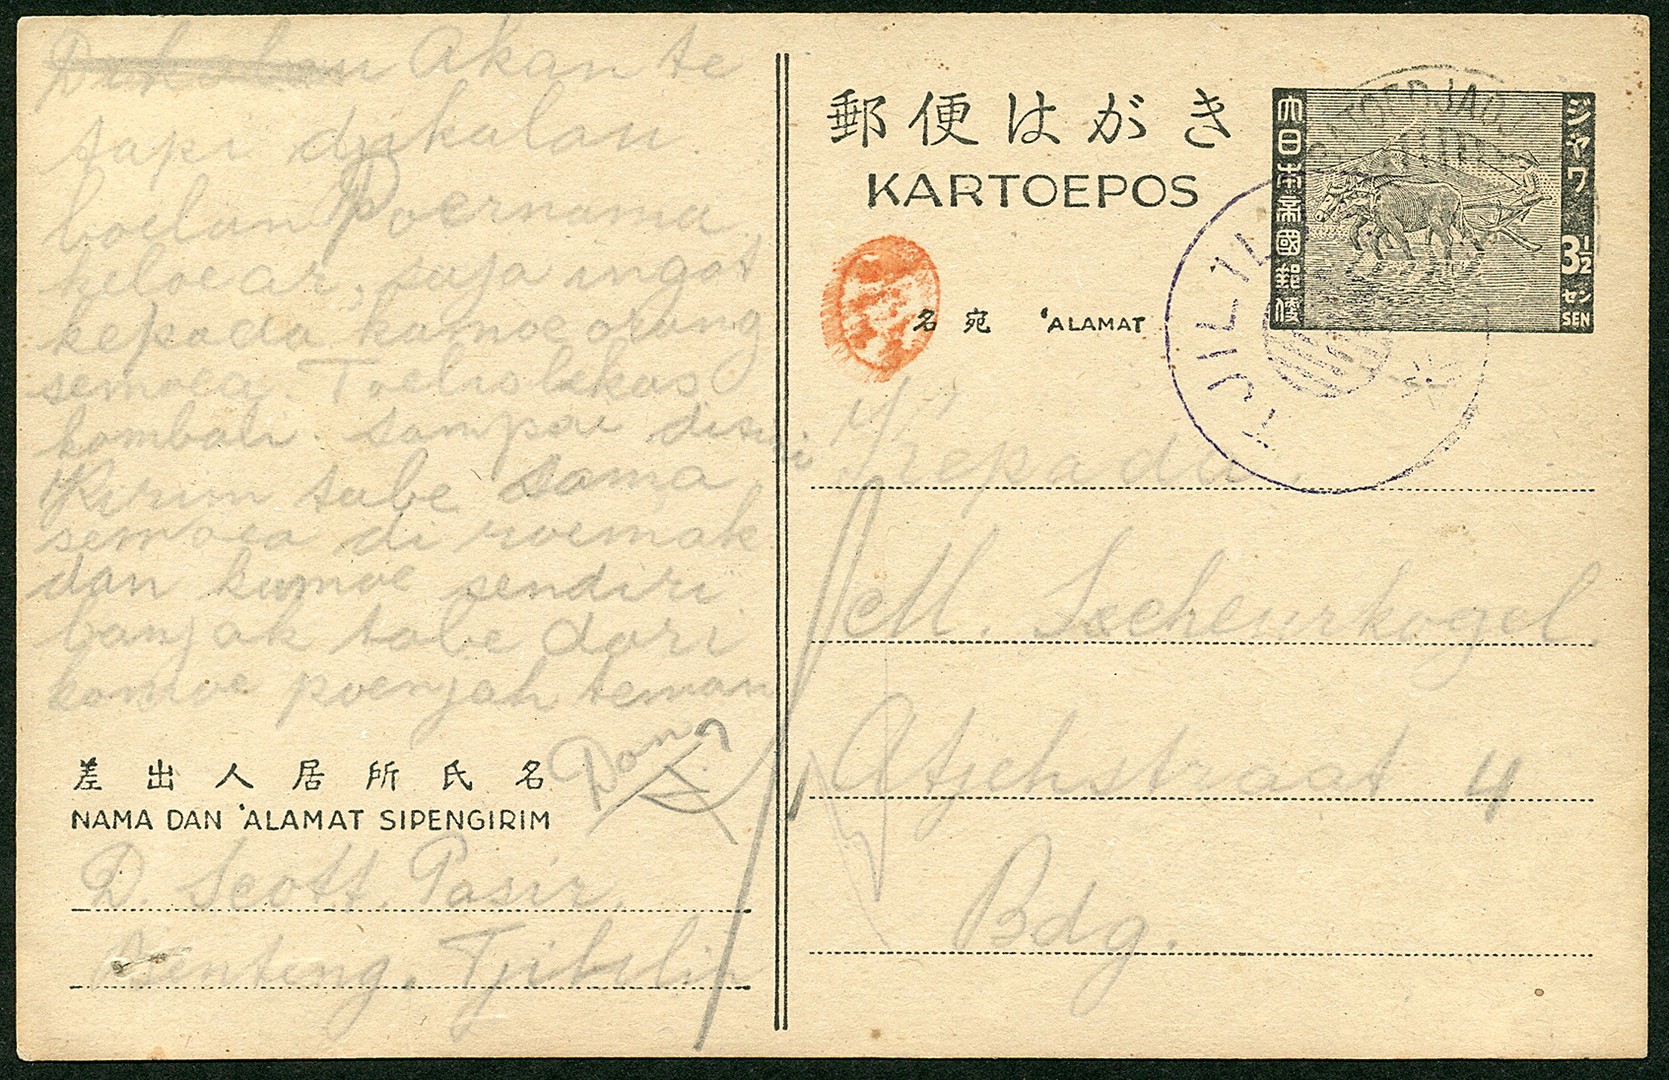 Akan te
tapi djikalau
boelan Poernama
keloear, saja ingat
kepada kamoe orang
semoea. Toelis lekas
kombali. Sampai disini
Kirim tabe sama
semoea di roemah
dan kamoe sendiri
banjak tabe dari
kamoe poenjah teman
Don
差出人居所氏名
NAMA DAN 'ALAMAT SIPENGIRIM
D. Scott, Pasir
Benteng, Tjililin
郵便はがき
KARTOEPOS
大日本帝國郵便
ジャワ
3½
セン
SEN
TJILIL
名宛 'ALAMAT
Kepada
M. Scheurkogel.
Atjehstraat 4
Bdg.